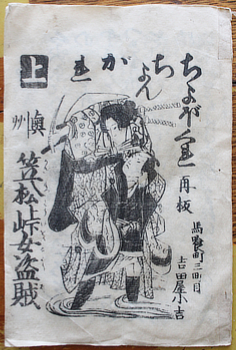 ちよぼくれ
ちよん
がれ
上
再板
馬喰町三丁目
吉田屋小吉
奥州
笠松峠女盗賊